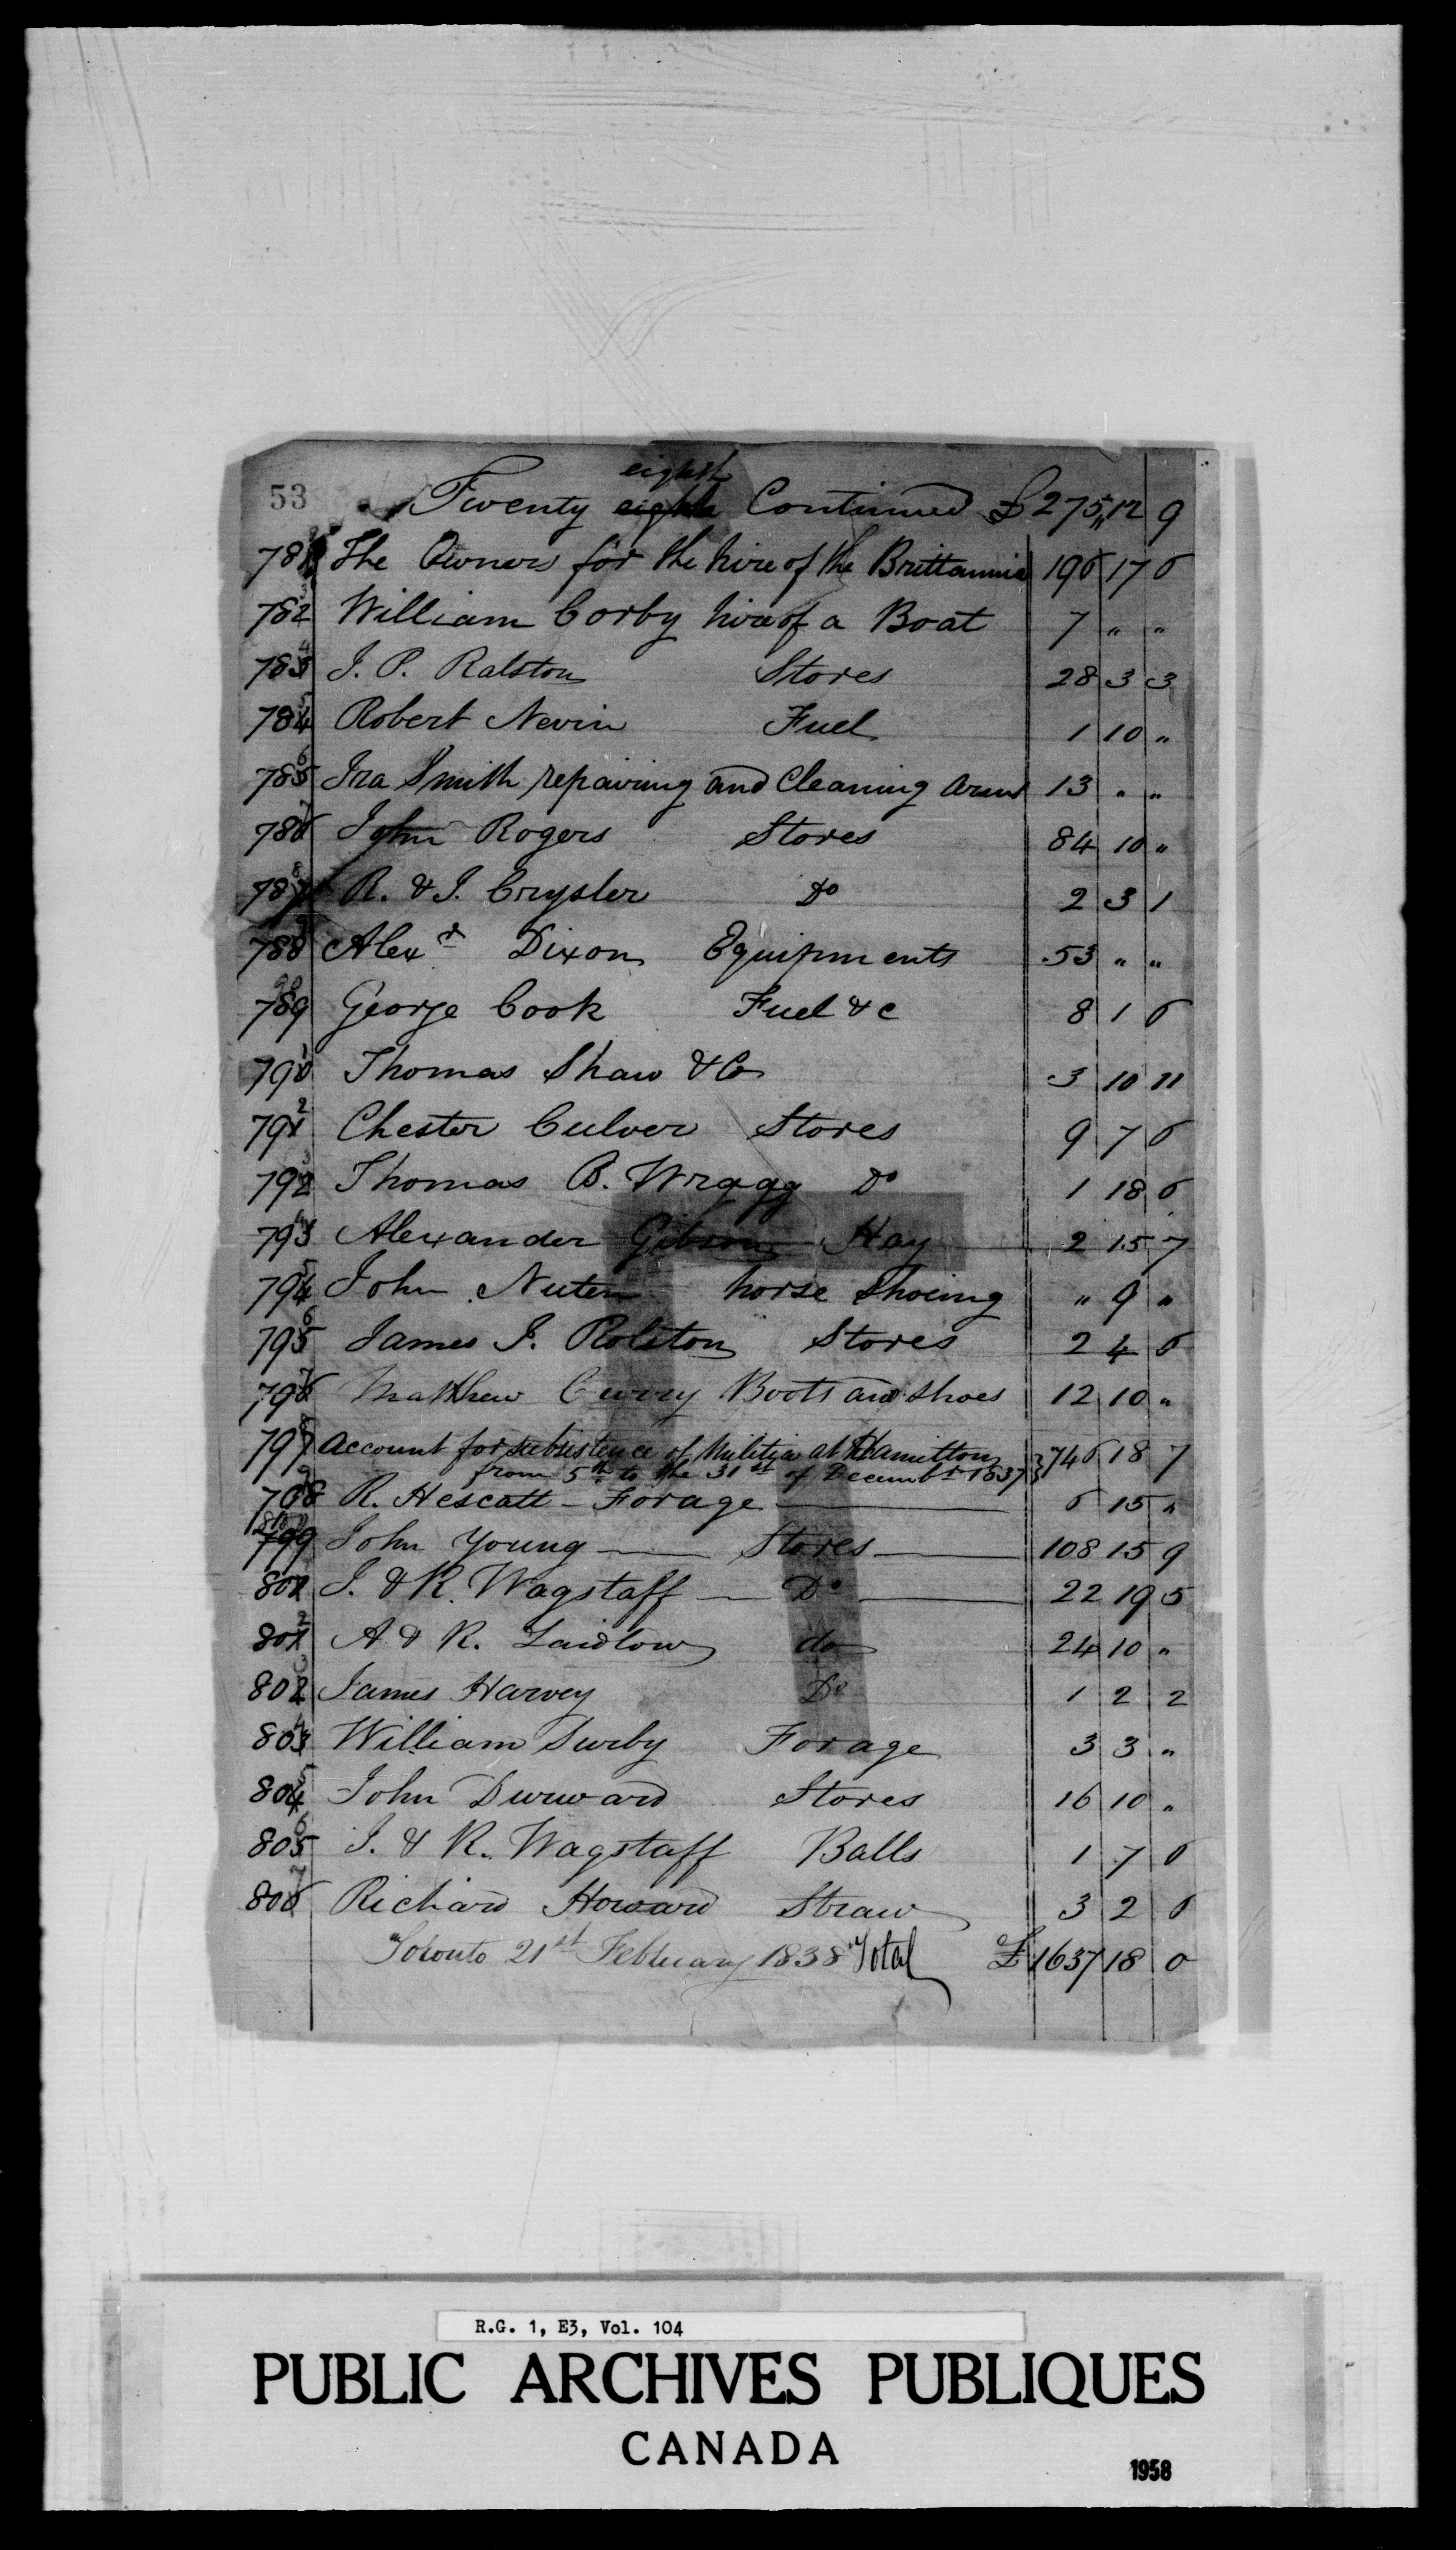 53
eighth
Twenty eighth Continued £ 275 " 12 9
781 The Owners for the hire of the Brittannia 196 17 6
782 William Corby hire of a Boat 7 " "
783 J. P. Ralston Stores 28 3 3
784 Robert Nevin Fuel 1 10 "
785 Ira Smith repairing and Cleaning Arms 13 " "
786 John Rogers Stores 84 10 "
787 R. & J. Crysler Do 2 3 1
788 Alexr Dixon Equipments 53 " "
789 George Cook Fuel & c 8 1 6
790 Thomas Shaw & Co 3 10 11
791 Chester Culver Stores 9 7 6
792 Thomas B. Wragg Do 1 18 6
793 Alexander Gibson Hay 2 15 7
794 John Nuten horse Shoeing " 9 "
795 James J. Rolston Stores 2 4 6
796 Matthew Curry Boots and Shoes 12 10 "
797 Account for subsistence of Militia at Hamilton
from 5th to the 31st of Decembr 1837 } 746 18 7
798 R. Hescatt - Forage 6 15 "
799 John Young Stores 108 15 9
801 J. & R. Wagstaff Do 22 19 5
801 A & R. Laidlow do 24 10 "
802 James Harvey Do 1 2 2
803 William Surby Forage 3 3 "
804 John Durward Stores 16 10 "
805 J. & R. Wagstaff Balls 1 7 6
806 Richard Howard Straw 3 2 6
Toronto 21st February 1838 Total £ 1637 18 0
R.G. 1, E3, Vol. 104
PUBLIC ARCHIVES PUBLIQUES
CANADA
1958